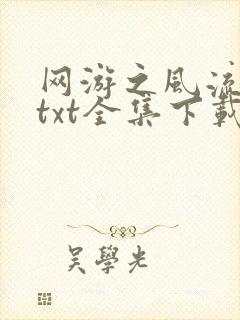 网游之风流
txt全集下载
吴學光